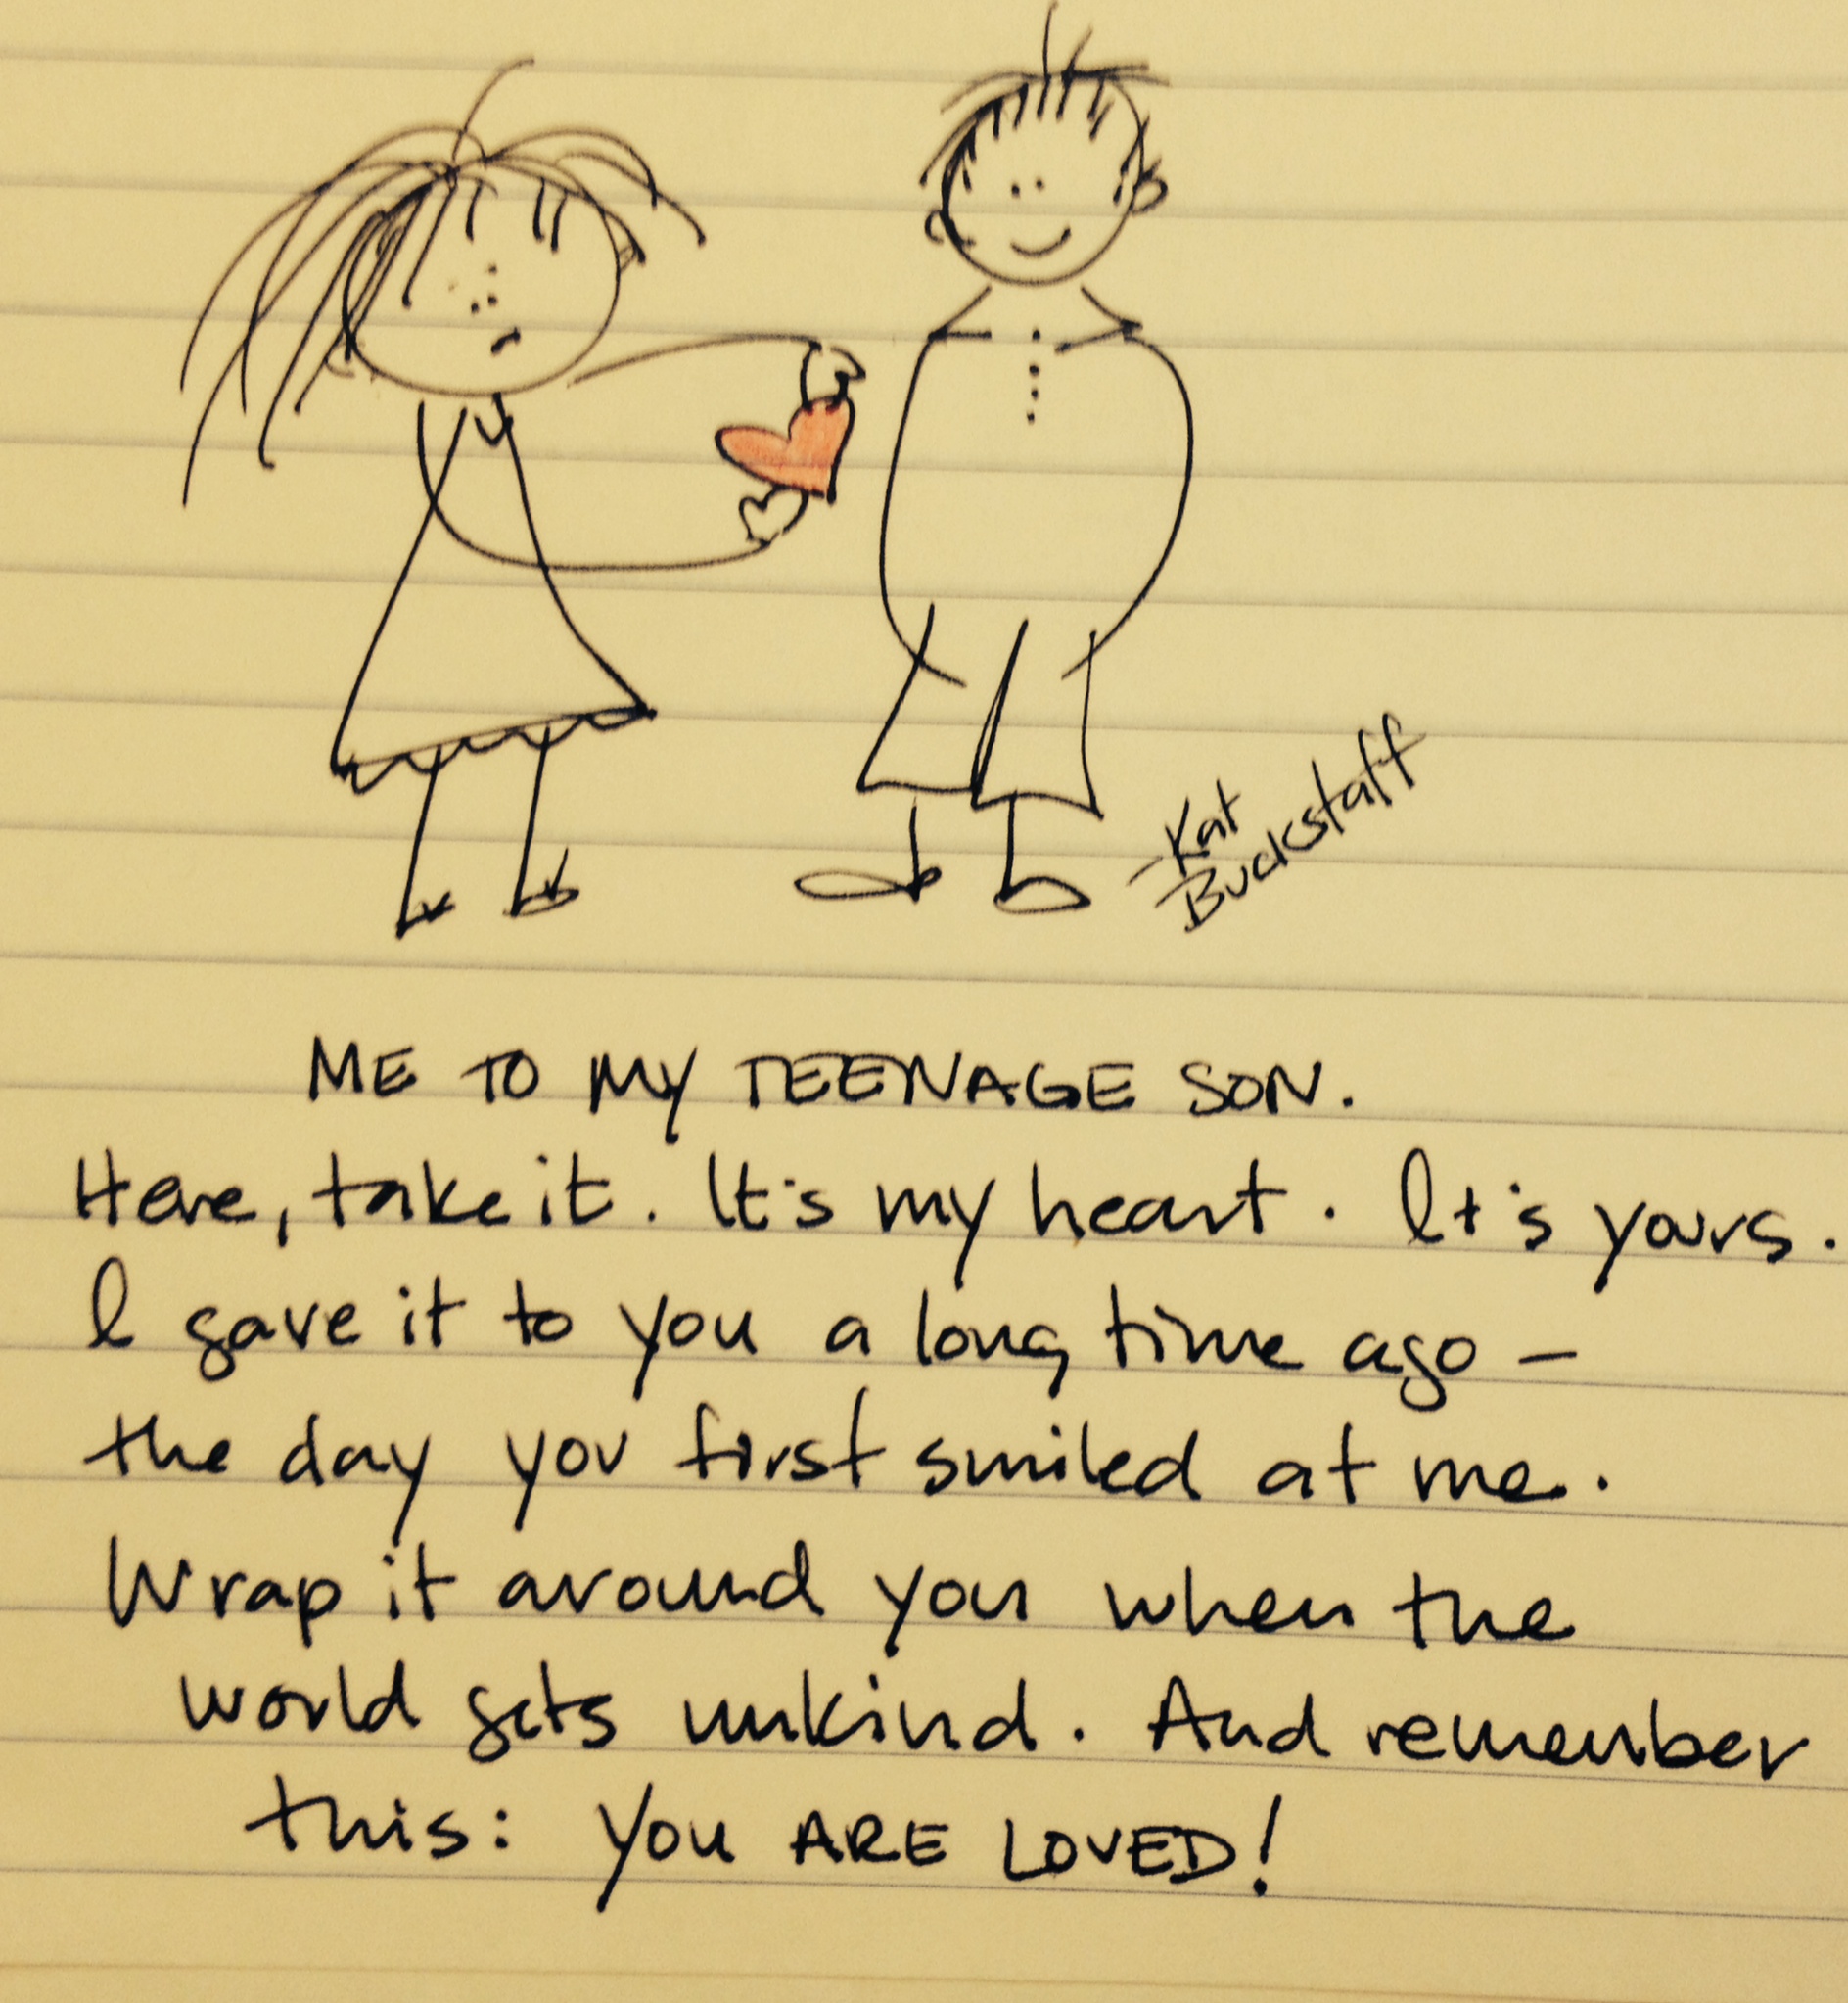 -Kat
Buckstaff
ME TO MY TEENAGE SON.
Here, take it. It's my heart. It's yours.
I gave it to you a long time ago -
the day you first smiled at me.
Wrap it around you when the
world gets unkind. And remember
this: YOU ARE LOVED!